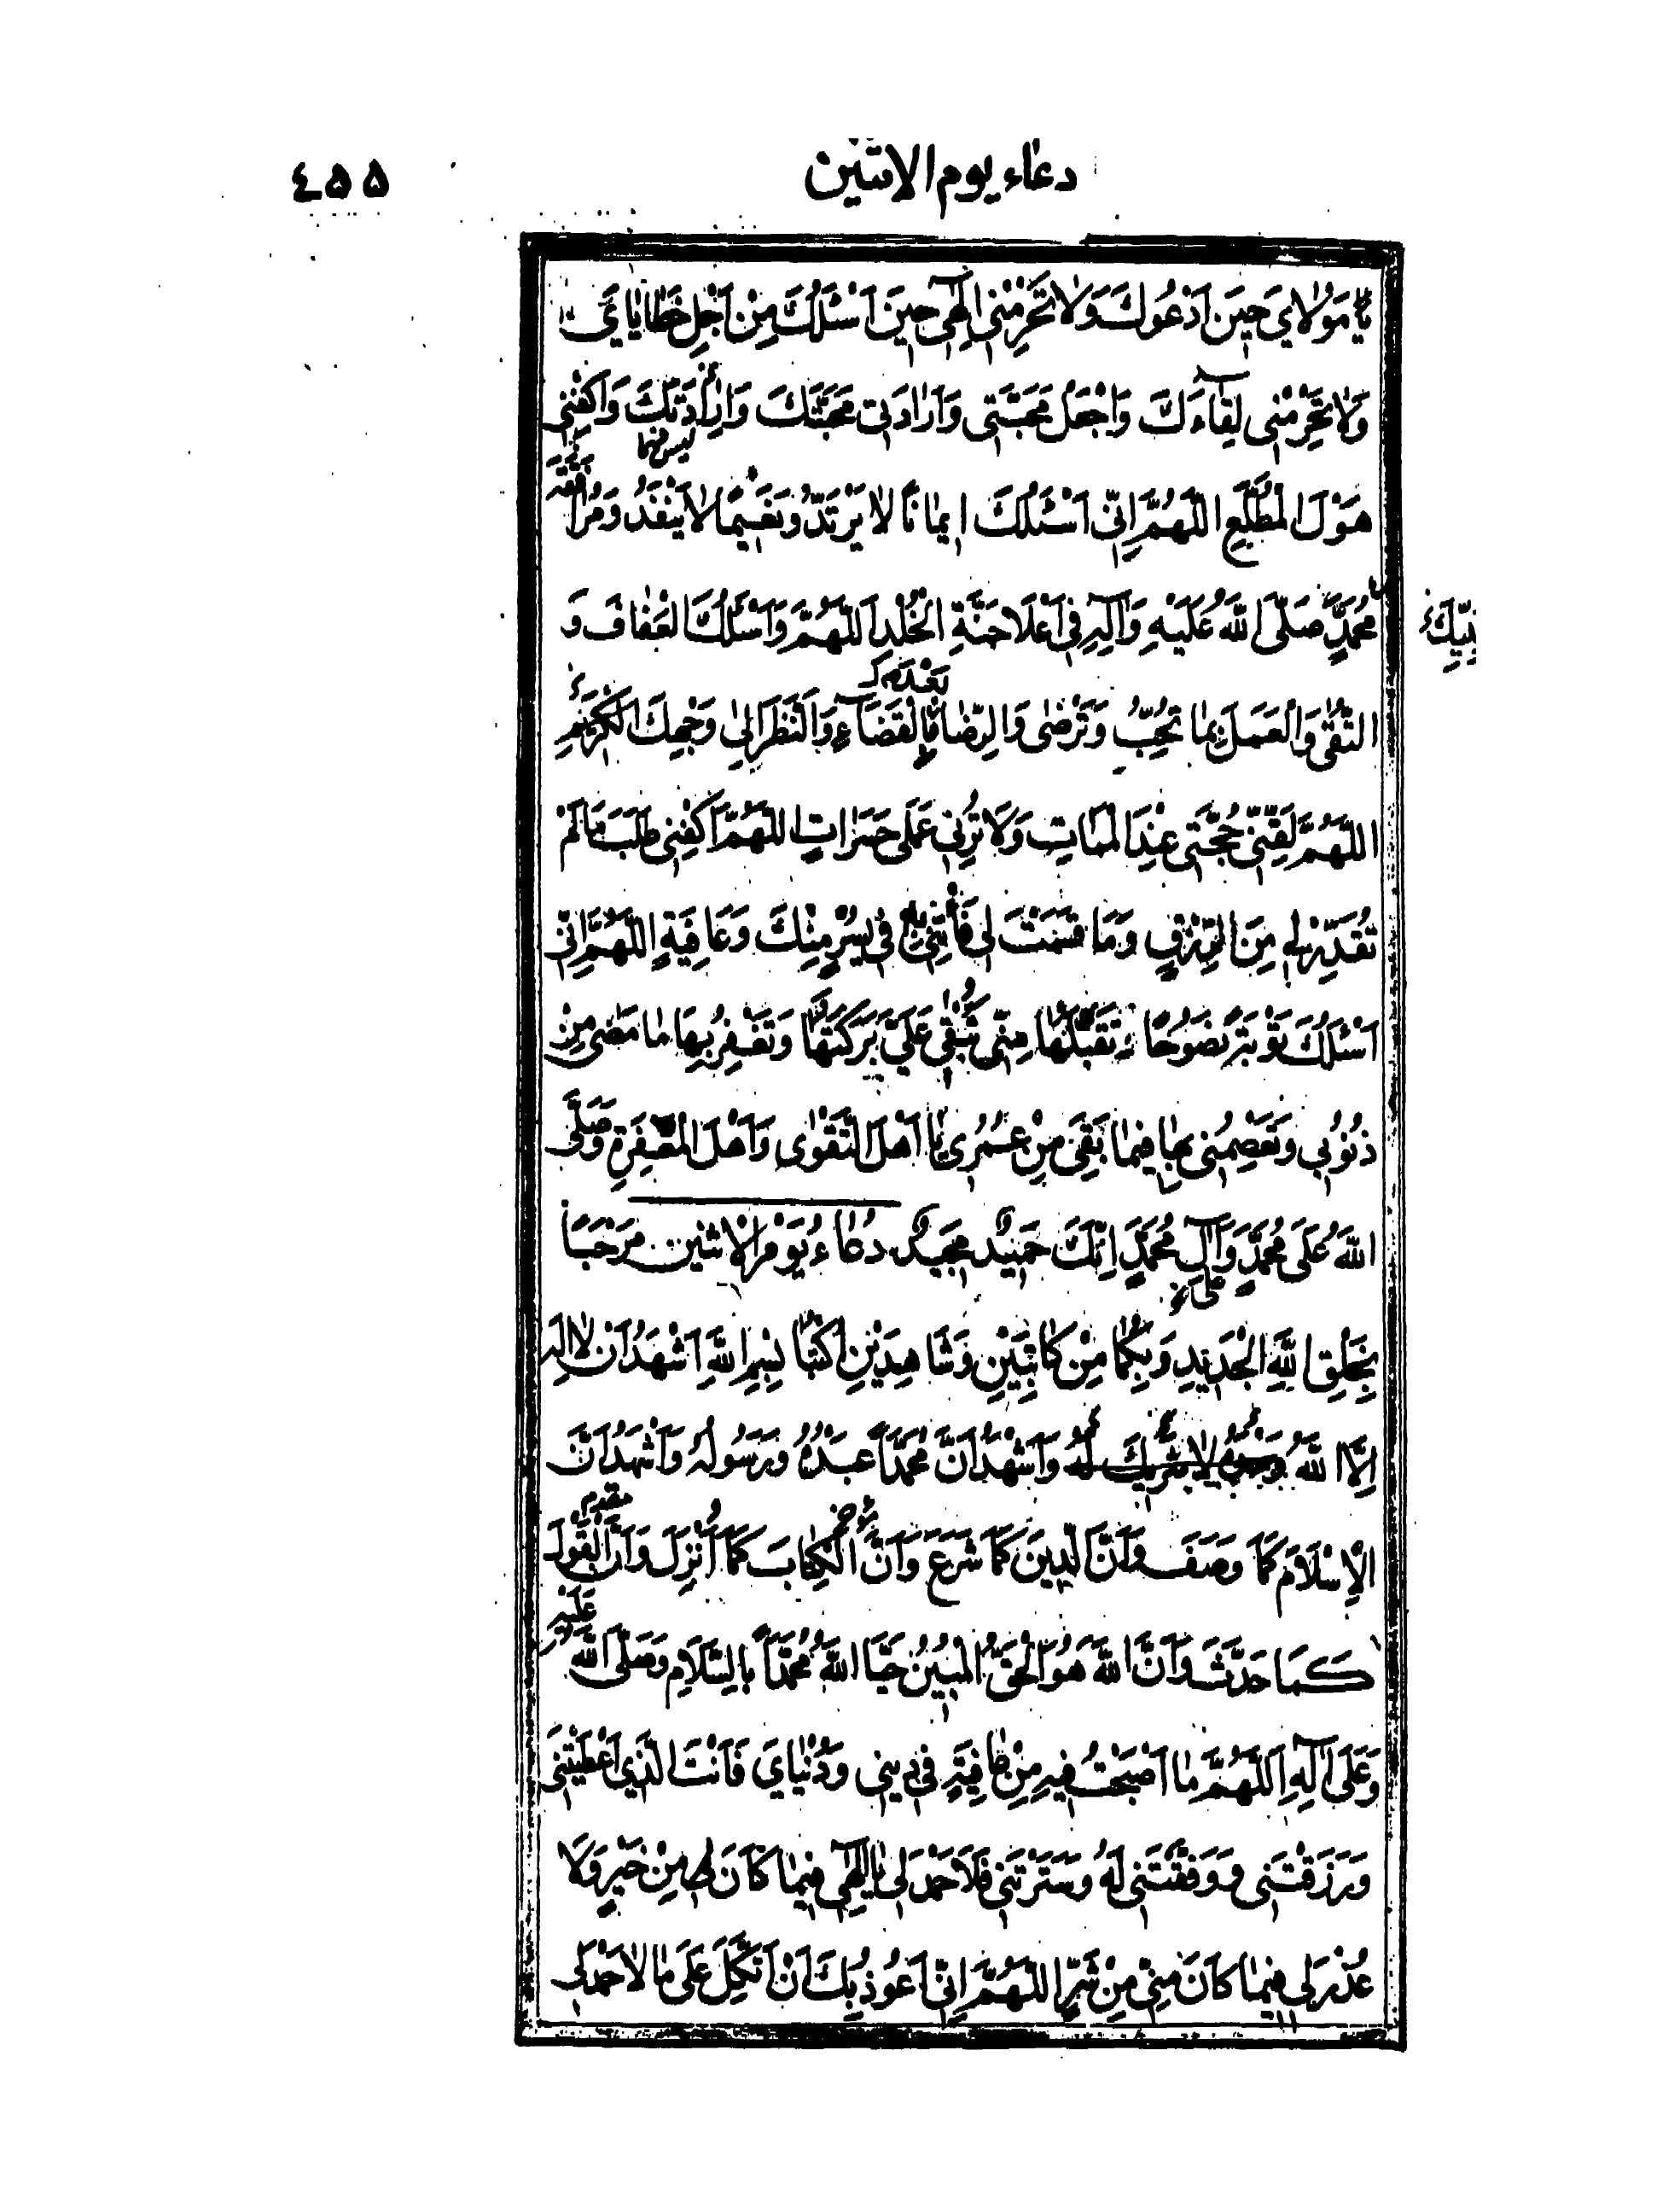 دعاء يوم الاثنين
٤٥٥
يٰا مَوْلاٰيَ حينَ اَدْعُوكَ وَلاٰ تَحْرِمْنى اِلٰهى حينَ اَسْئَلُكَ مِنْ اَجْلِ خَطاٰياٰيَ
وَلاٰ تَحْرِمْنى لِقاٰءَكَ وَاجْعَلْ مَحَبَّتى وَاِرٰادَتى مَحَبَّتَكَ وَاِرٰادَتَكَ وَاكْفِنى
هَوْلَ الْمُطَّلَعِ اللّهُمَّ اِنّى اَسْئَلُكَ ايمٰانًا لاٰ يَرْتَدُّ وَنَعيمًا لاٰ يَنْفَدُ وَمُرٰافَقَةَ
نَبِيِّكَ
مُحَمَّدٍ صَلَّى اللّهُ عَلَيْهِ وَآلِهِ فى اَعْلاَ جَنَّةِ الْخُلْدِ اَللّهُمَّ وَاَسْئَلُكَ الْعَفٰافَ وَ
التُّقٰى وَالْعَمَلَ بِمٰا تُحِبُّ وَتَرْضٰى وَالرِّضٰا بِالْقَضَاءِ وَالنَّظَرَ اِلىٰ وَجْهِكَ الْكَرِيمِ
اللّهُمَّ لَقِّنّى حُجَّتى عِنْدَ الْمَمَاتِ وَلاَ تُرِنى عَمَلى حَسَرٰاتٍ اللّهُمَّ اكْفِنى طَلَبَ مَا لَمْ
تُقَدِّرْ لى مِنَ الرِّزْقِ وَمَا قَسَمْتَ لى فَأْتِنى بِهِ فى يُسْرٍ مِنْكَ وَعَافِيَةٍ اللّهُمَّ اِنّى
اَسْئَلُكَ تَوْبَةً نَصُوحًا تَقْبَلُهٰا مِنّى تُبْقى عَلَيَّ بَرَكَتَهٰا وَتَغْفِرُ بِهَا مٰا مَضٰى مِنْ
ذُنُوبى وَتَعْصِمُنى بِهٰا فيمٰا بَقِيَ مِنْ عُمُرى يٰا اَهْلَ التَّقْوٰى وَاَهْلَ الْمَغْفِرَةِ وَصَلَّى
اللّهُ عَلَى مُحَمَّدٍ وَآلِ مُحَمَّدٍ اِنَّكَ حَميدٌ مَجيدٌ دُعٰاءُ يَوْمِ الْاِثْنَيْنِ مَرْحَبًا
بِخَلْقِ اللّهِ الْجَديدِ وَبِكُمٰا مِنْ كٰاتِبَيْنِ وَشَاهِدَيْنِ اُكْتُبٰا بِسْمِ اللّهِ اَشْهَدُ اَنْ لاٰ اِلٰهَ
اِلاَّ اللّهُ وَحْدَهُ لاٰ شَريكَ لَهُ وَاَشْهَدُ اَنَّ مُحَمَّداً عَبْدُهُ وَرَسُولُهُ وَاَشْهَدُ اَنَّ
الْاِسْلاَمَ كَمَا وَصَفَ وَاَنَّ الدّينَ كَمَا شَرَعَ وَاَنَّ الْكِتٰابَ كَمَا اُنْزِلَ وَاَنَّ الْقَوْلَ
كَمَا حَدَّثَ وَاَنَّ اللّهَ هُوَ الْحَقُّ الْمُبينُ حَيَّا اللّهُ مُحَمَّداً بِالسَّلاَمِ وَصَلَّى اللّهُ عَلَيْهِ
وَعَلَى آلِهِ اَللّهُمَّ مٰا اَصْبَحْتُ فيهِ مِنْ عٰافِيَةٍ فى دينى وَدُنْيٰايَ فَاَنْتَ الَّذى اَعْطَيْتَنى
وَرَزَقْتَنى وَوَفَّقْتَنى لَهُ وَسَتَرْتَنى فَلاَ حَمْدَ لى يٰا اِلٰهى فيمٰا كَانَ مِنْ خَيْرٍ وَلاَ
عُذْرَ لى فيمٰا كَانَ مِنّى مِنْ شَرٍّ اللّهُمَّ اِنّى اَعُوذُ بِكَ اَنْ اَتَّكِلَ عَلَى مٰا لاٰ حَمْدَ لى